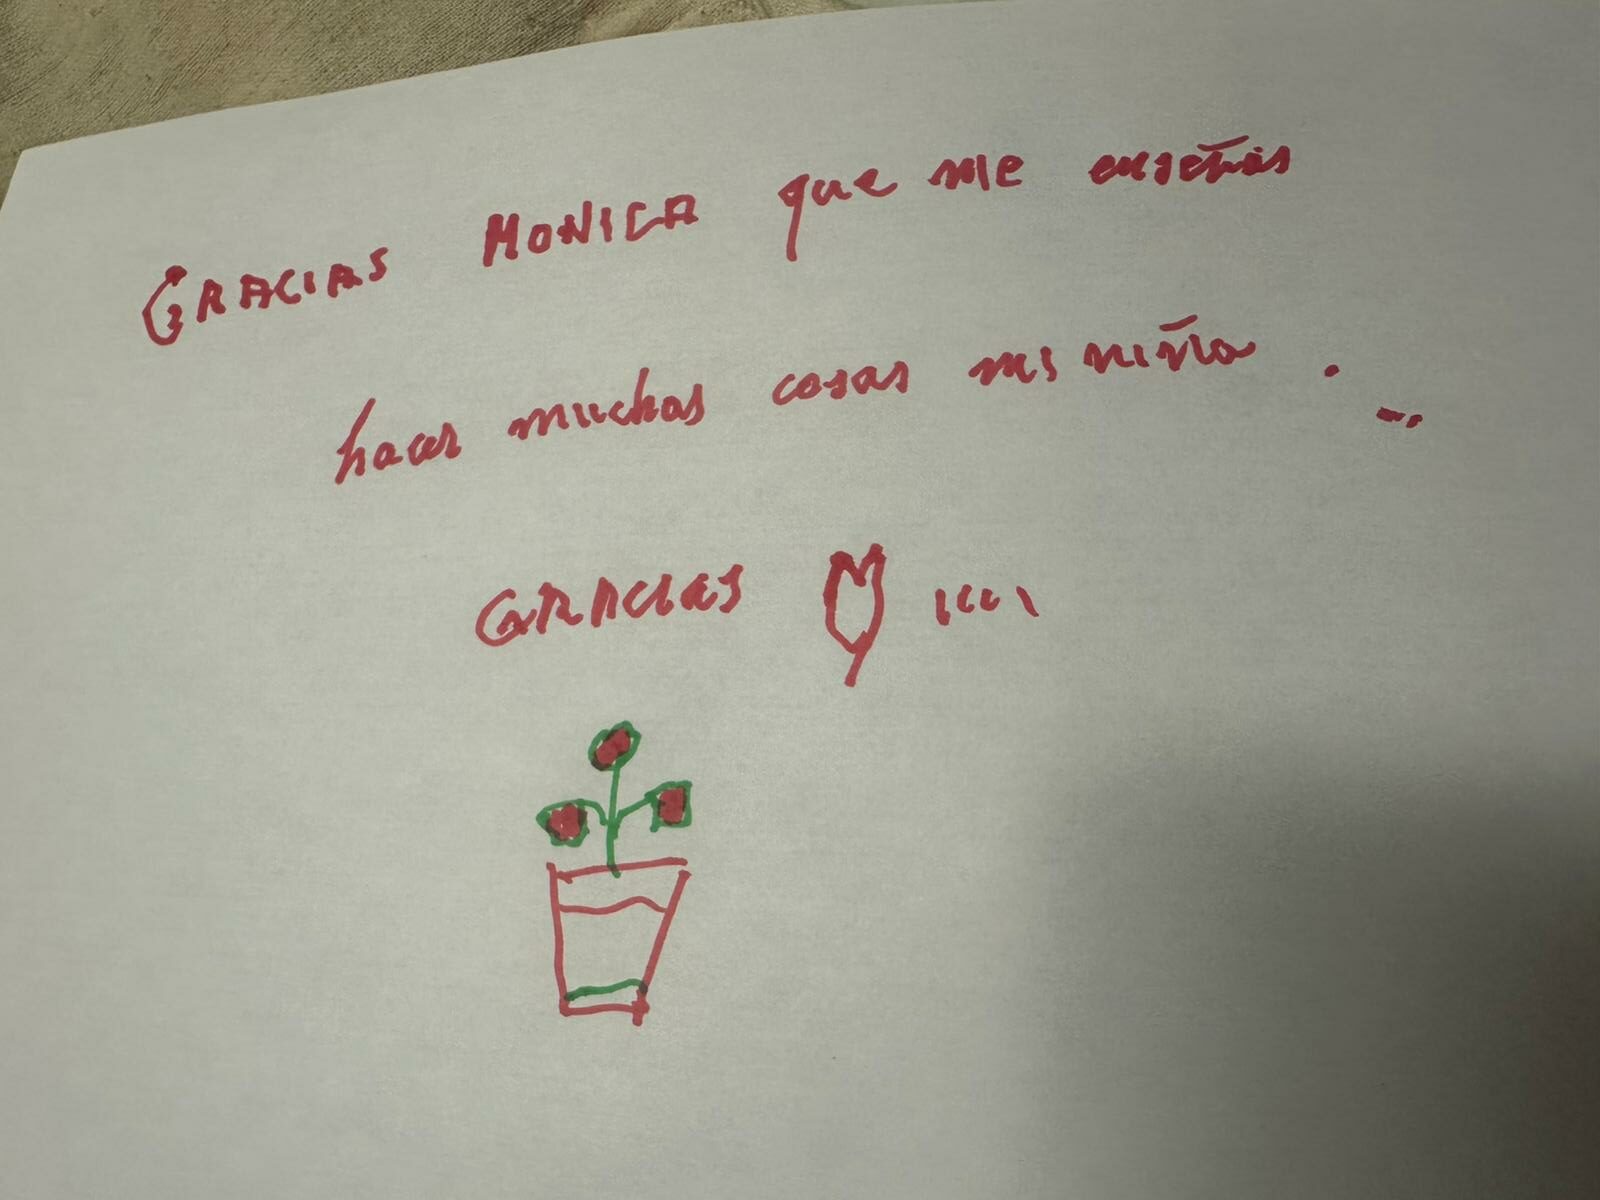 GRACIAS MONICA que me enseñas
hacer muchas cosas mi niña . ...
GRACIAS ....